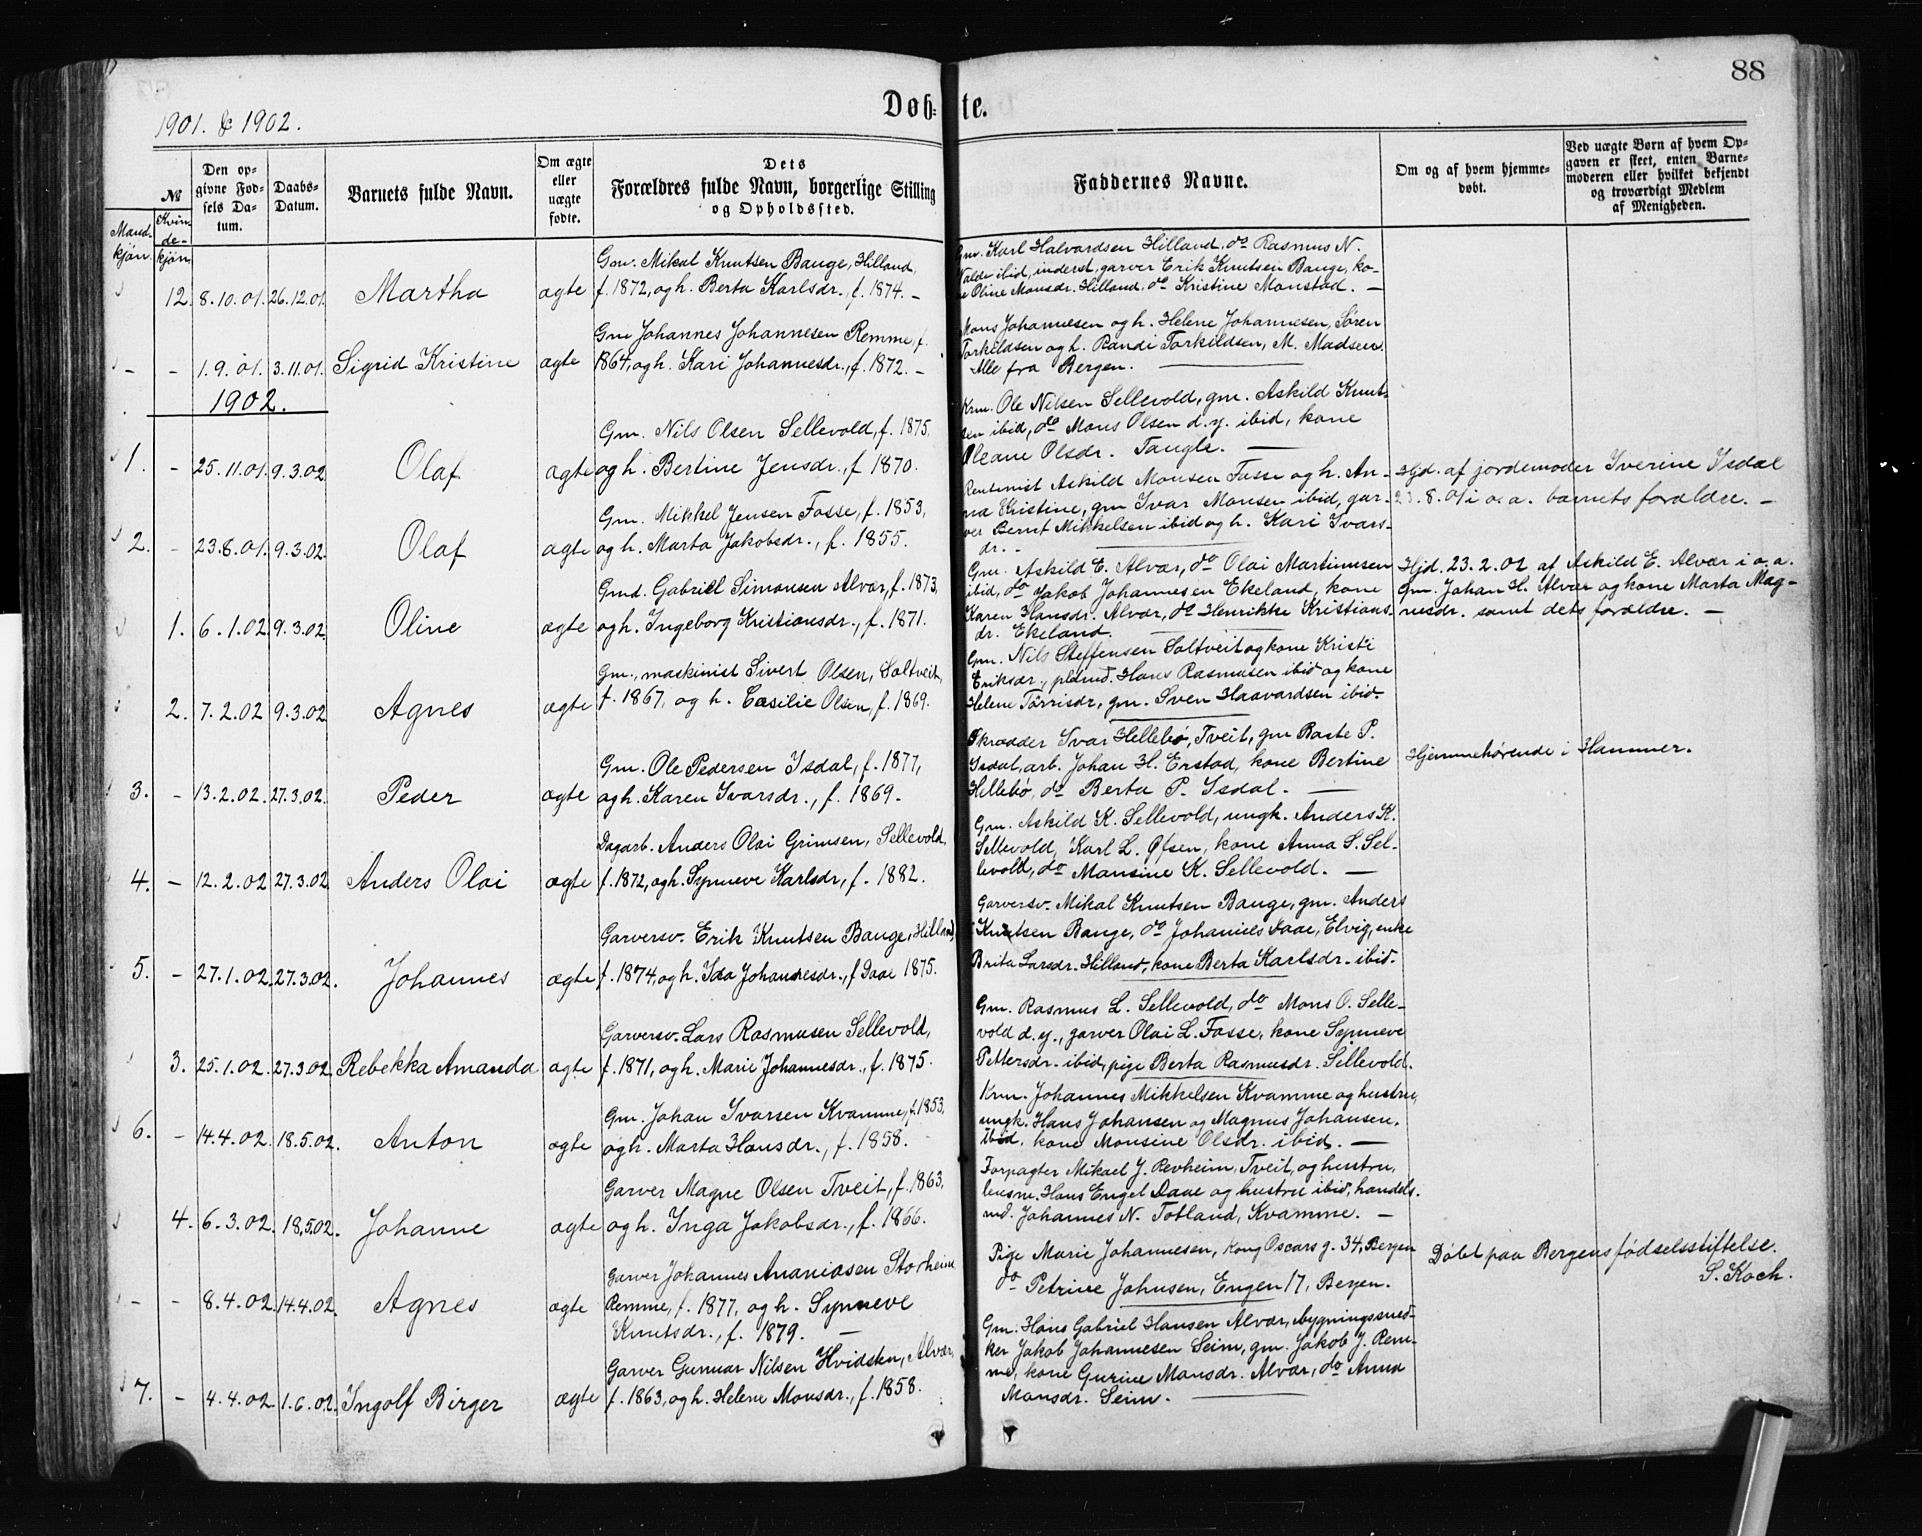 88
Døb-te.
1901. & 1902.
№
Mandkjøn.
Kvindekjøn.
Den opgivne Fødsels Datum.
Daabs-Datum.
Barnets fulde Navn.
Om ægte eller uægte fødte.
Dets Forældres fulde Navn, borgerlige Stilling og Opholdssted.
Faddernes Navne.
Om og af hvem hjemmedøbt.
Ved uægte Børn af hvem Opgaven er skeet, enten Barnemoderen eller hvilket bekjendt og troværdigt Medlem af Menigheden.
12. 8.10.01. 26.12.01. Martha ægte
Gm. Mikal Knutsen Bauge, Hilland,
f. 1872, og h. Berta Karlsdr., f. 1874. –
Gm. Karl Halvardsen Hilland, do Rasmus N.
Valde ibid, inderst, garver Erik Knutsen Bauge, ko-
ne Oline Monsdr. Hilland, do Kristine Monstad. –
– – 1.9.01. 3.11.01. Sigrid Kristine ægte
Gm Johannes Johannesen Remme, f.
1864, og h. Kari Johannesdr., f. 1872. –
Mons Johannesen og h. Helene Johannesen, Søren
Torkildsen og h. Randi Torkildsen, M. Madsen.
Alle fra Bergen.
1902.
1. – 25.11.01. 9.3.02. Olaf ægte
Gm. Nils Olsen Sellevold, f. 1875,
og h. Bertine Jensdr., f 1870.
Krm. Ole Nilsen Sellevold, gm. Askild Knut-
sen ibid, do Mons Olsen d.y. ibid, kone
Oleane Olsdr. Tangle. –
2. – 23.8.01. 9.3.02. Olaf ægte
Gm. Mikkel Jensen Fosse, f. 1853,
og h. Marta Jakobsdr., f. 1855.
Rentenist Askild Monsen Fosse og h. An-
na Kristine, gm Ivar Monsen ibid, gar-
ver Bernt Mikkelsen ibid og h. Kari Ivars-
dr. –
Hjd. af jordemoder Iverine Isdal
23.8.01 i o.a. barnets forældre. –
1. 6.1.02. 9.3.02. Oline ægte
Gmd. Gabriel Simonsen Alvær, f. 1873,
og h. Ingeborg Kristiansdr., f. 1871.
Gm. Askild E. Alvær, do Olai Martinusen
ibid, do Jakob Johannesen Ekeland, kone
Karen Hansdr. Alvær, do Henrikke Kristians-
dr. Ekeland.
Hjd. 23.2.02 af Askild E. Alvær i o.a.
gm. Johan H. Alvær og kone Marta Mag-
nusdr. samt dets forældre. –
2. 7.2.02 9.3.02 Agnes ægte
Gm., maskinist Sivert Olsen, Soltveit,
f. 1867, og h. Casilie Olsen, f. 1869.
Gm. Nils Steffensen Soltveit og kone Kristi
Eriksdr., Hans Rasmusen ibid og kone
Helene Torrisdr, gm. Sven Haavardsen ibid.
3. – 13.2.02. 27.3.02. Peder ægte
Gm. Ole Pedersen Isdal, f. 1877,
og h. Karen Ivarsdr., f. 1869.
Skrædder Ivar Hellebø, Tveit, gm Baste P.
Isdal, arb. Johan H. Erstad, kone Bertine
Hellebø, do Berta P. Isdal. –
Hjemmehørende i Hammer.
4. – 12.2.02 27.3.02 Anders Olai ægte
Dagarb. Anders Olai Grimsen, Sellevold,
f. 1872, og h. Synneve Karlsdr, f. 1882.
Gm. Askild K. Sellevold, ungk. Anders K.
Sellevold, Karl L. Øfsen, kone Anna S. Sel-
levold, do Monsine K. Sellevold. –
5. – 27.1.02. 27.3.02. Johannes ægte
Garversv. Erik Knutsen Bauge, Hilland,
f. 1874, og h. Ida Johannesdr., f Daae 1875.
Garversv. Mikal Knutsen Bauge, gm. Anders
Knutsen Bauge, do Johannes Daae, Elvig, enke
Brita Larsdr. Hilland, kone Berta Karlsdr. ibid.
3. 25.1.02. 27.3.02 Rebekka Amanda ægte
Garversv. Lars Rasmusen Sellevold,
f. 1871, og h. Marie Johannesdr., f. 1875.
Gm. Rasmus L. Sellevold, do Mons O. Selle-
vold d.y., garver Olai L. Fosse, kone Synneve
Pettersdr. ibid, pige Berta Rasmusdr. Sellevold.
6. – 14.4.02. 18.5.02. Anton ægte
Gm. Johan Ivarsen Kvamme, f. 1853,
og h. Marta Hansdr., f. 1858.
Krm. Johannes Mikkelsen Kvamme og hustru,
ungk. Hans Johansen og Magnus Johansen,
ibid, kone Monsine Olsdr. ibid. –
4. 6.3.02. 18.5.02. Johanne ægte
Garver Magne Olsen Tveit, f. 1863,
og h. Inga Jakobsdr., f. 1866.
Forpagter Mikael J. Revheim, Tveit, og hustru,
lensm. Hans Engel Daae og hustru ibid, handels-
md. Johannes N. Totland, Kvamme. –
– – 8.4.02. 14.4.02. Agnes ægte
Garver Johannes Ananiasen Storheim
Remme, f. 1877, og h. Synneve
Knutsdr., f. 1879. –
Pige Marie Johannesen, Kong Oscars g. 34, Bergen
do Petrine Johnsen, Engen 17, Bergen.
Døbt paa Bergens fødselsstiftelse.
S. Koch.
7. – 4.4.02. 1.6.02. Ingolf Birger ægte
Garver Gunnar Nilsen Hvidsten, Alvær,
f. 1863, og h. Helene Monsdr., f. 1858.
Gm. Hans Gabriel Hansen Alvær, bygningssned-
ker Jakob Johannesen Seim, gm. Jakob J. Rem-
me, kone Gurine Monsdr. Alvær, do Anna
Monsdr. Seim.